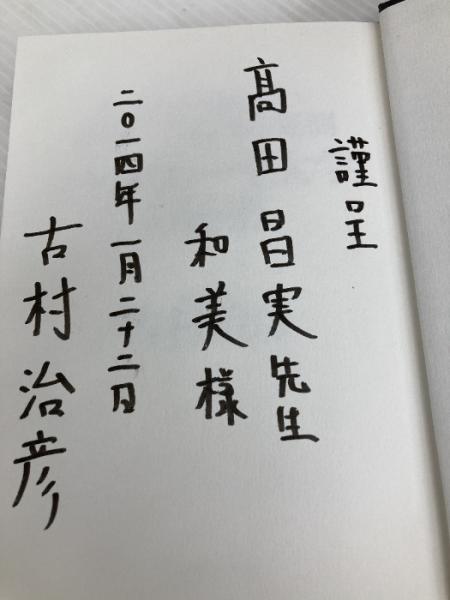 謹呈
髙田昌実先生
和美様
二〇一四年一月二十二日
古村治彦